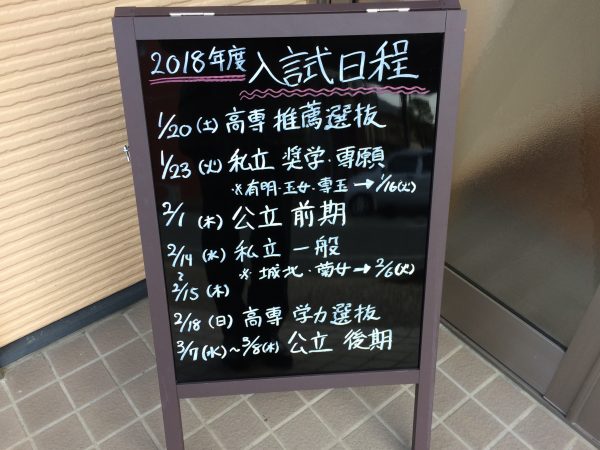 2018年度 入試日程
1/20(土) 高専 推薦選抜
1/23(火) 私立 奨学・専願
※有明・玉女・専玉→1/16(火)
2/1(木) 公立 前期
2/14(水) 私立 一般
※城北・菊女→2/6(火)
~
2/15(木)
2/18(日) 高専 学力選抜
3/7(水)~3/8(木) 公立 後期